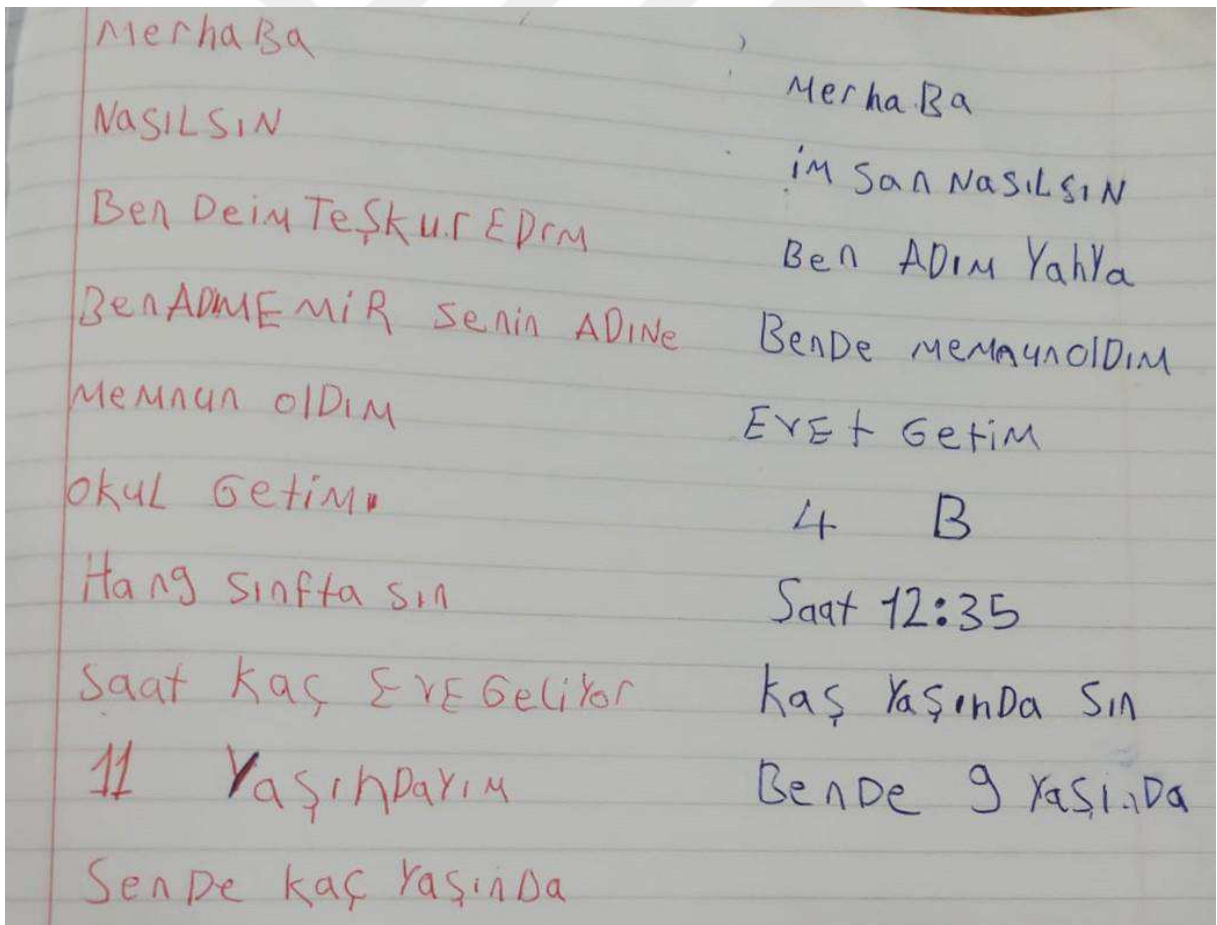 MerhaBa
NaSILSIN
Ben Deim TeŞkur EDrM
Ben ADMEMiR Senin ADINe
MeMnun olDIM
Okul GetiM.
Hang Sınfta Sın
Saat Kaç EVE GeliYor
11 YaşınDaYıM
SenDe kaç YaşınDa
MerhaBa
iM San NaSILSIN
Ben ADIM YahYa
BenDe olDIM
EVEt GetiM
4 B
Saat 12:35
kaş YaşınDa Sın
BenDe 9 YaşinDa